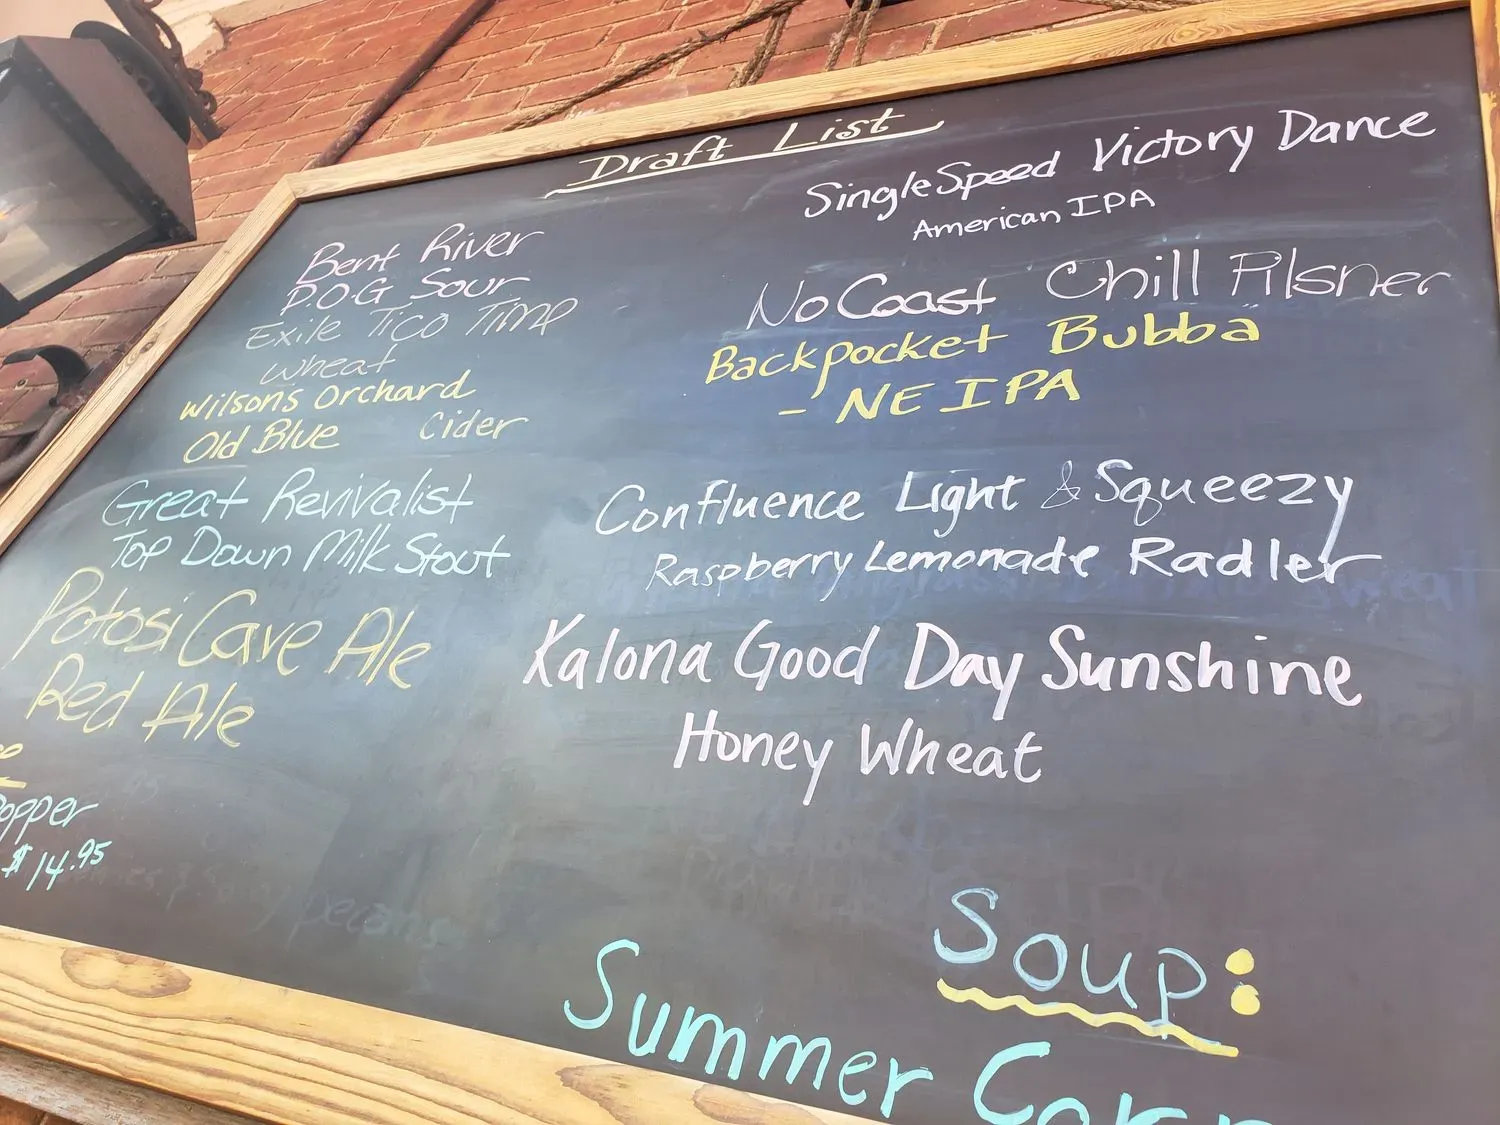 Draft List
Bent River
P.O.G Sour
Exile Tico Time
Wheat
Wilson's Orchard
Old Blue Cider
Great Revivalist
Top Down Milk Stout
Potosi Cave Ale
Red Ale
$14.95
SingleSpeed Victory Dance
American IPA
No Coast Chill Pilsner
Backpocket Bubba
- NE IPA
Confluence Light & Squeezy
Raspberry Lemonade Radler
Kalona Good Day Sunshine
Honey Wheat
Soup:
Summer